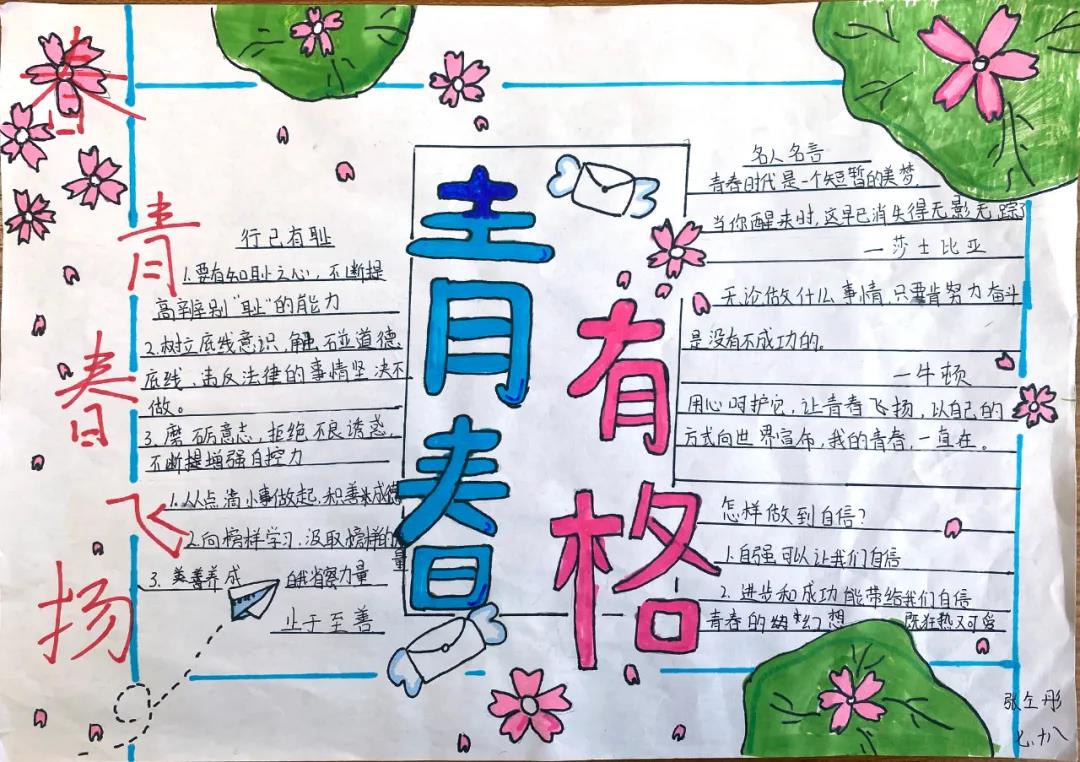 春
青
春
飞
扬
行己有耻
1.要有知耻之心，不断提
高辨别“耻”的能力
2.树立底线意识，触碰道德
底线、违反法律的事情坚决不
做。
3.磨砺意志，拒绝不良诱惑，
不断提增强自控力
1.从点滴小事做起，积善成德
2.向榜样学习，汲取榜样的
量
3.美善养成 自我省察力量
止于至善
青春
有格
名人名言
青春时代是一个短暂的美梦，
当你醒来时，这早已消失得无影无踪
—莎士比亚
无论做什么事情，只要肯努力奋斗
是没有不成功的。
—牛顿
用心呵护它，让青春飞扬，以自己的
方式向世界宣布，我的青春，一直在。
怎样做到自信？
1.自强可以让我们自信
2.进步和成功能带给我们自信
青春的 幻想 既狂热又可爱
张 彤
七.十八